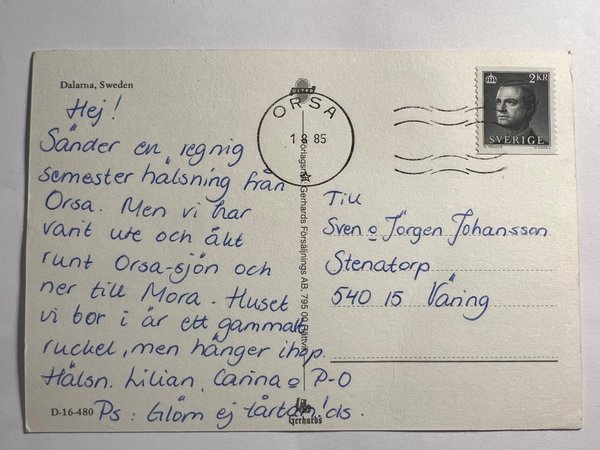 Dalarna, Sweden
Hej!
Sänder en regnig
semester hälsning från
Orsa. Men vi har
varit ute och åkt
runt Orsa-sjön och
ner till Mora. Huset
vi bor i är ett gammalt
ruckel, men hänger ihop.
Hälsn. Lilian, Carina o P-O
Ps: Glöm ej tårtan! ds.
D-16-480
ULTRA
Förlagsrätt: Gerhards Försäljnings AB, 795 00 Rättvik
Gerhards
ORSA
85
2 KR
SVERIGE
Till
Sven o Jörgen Johansson
Stenatorp
540 15 Väring